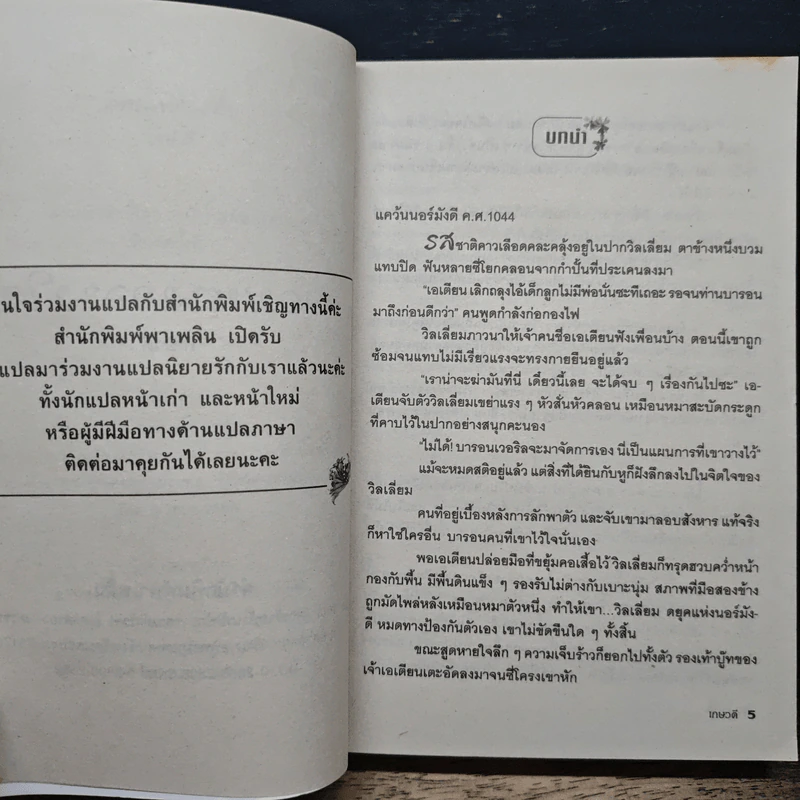 นใจร่วมงานแปลกับสำนักพิมพ์เชิญทางนี้ค่ะ
สำนักพิมพ์พาเพลิน เปิดรับ
แปลมาร่วมงานแปลนิยายรักกับเราแล้วนะค่ะ
ทั้งนักแปลหน้าเก่า และหน้าใหม่
หรือผู้มีฝีมือทางด้านแปลภาษา
ติดต่อมาคุยกันได้เลยนะคะ
บทนำ
แคว้นนอร์มังดี ค.ศ.1044
รสชาติคาวเลือดคละคลุ้งอยู่ในปากวิลเลี่ยม ตาข้างหนึ่งบวม
แทบปิด ฟันหลายซี่โยกคลอนจากกำปั้นที่ประเคนลงมา
"เอเตียน เลิกถลุงไอ้เด็กลูกไม่มีพ่อนั่นซะทีเถอะ รอจนท่านบารอน
มาถึงก่อนดีกว่า" คนพูดกำลังก่อกองไฟ
วิลเลี่ยมภาวนาให้เจ้าคนชื่อเอเตียนฟังเพื่อนบ้าง ตอนนี้เขาถูก
ซ้อมจนแทบไม่มีเรี่ยวแรงจะทรงกายยืนอยู่แล้ว
"เราน่าจะฆ่ามันที่นี่ เดี๋ยวนี้เลย จะได้จบ ๆ เรื่องกันไปซะ" เอ-
เตียนจับตัววิลเลี่ยมเขย่าแรง ๆ หัวสั่นหัวคลอน เหมือนหมาสะบัดกระดูก
ที่คาบไว้ในปากอย่างสนุกคะนอง
"ไม่ได้! บารอนเวอริลจะมาจัดการเอง นี่เป็นแผนการที่เขาวางไว้"
แม้จะหมดสติอยู่แล้ว แต่สิ่งที่ได้ยินกับหูก็ฝังลึกลงไปในจิตใจของ
วิลเลี่ยม
คนที่อยู่เบื้องหลังการลักพาตัว และจับเขามาลอบสังหาร แท้จริง
ก็หาใช่ใครอื่น บารอนคนที่เขาไว้ใจนั่นเอง
พอเอเตียนปล่อยมือที่ขยุ้มคอเสื้อไว้ วิลเลี่ยมก็ทรุดฮวบคว่ำหน้า
กองกับพื้น มีพื้นดินแข็ง ๆ รองรับไม่ต่างกับเบาะนุ่ม สภาพที่มือสองข้าง
ถูกมัดไพล่หลังเหมือนหมาตัวหนึ่ง ทำให้เขา...วิลเลี่ยม ดยุคแห่งนอร์มัง-
ดี หมดทางป้องกันตัวเอง เขาไม่ขัดขืนใด ๆ ทั้งสิ้น
ขณะสูดหายใจลึก ๆ ความเจ็บร้าวก็ยอกไปทั้งตัว รองเท้าบู๊ทของ
เจ้าเอเตียนเตะอัดลงมาจนซี่โครงเขาหัก
เกษวดี 5